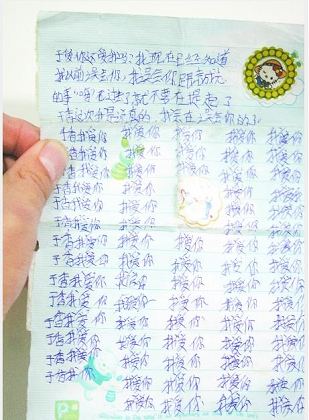 你还爱我吗?我现在已经知道
我以前误会你,我误会你
的事 过去了就不要在提起了
于杏这次我是说真的,我会在误会你的了
杏我爱你 我爱你 我爱你 我爱你
杏我爱你 我爱你 我爱你 我爱你
杏我爱你 我爱你 我爱你 我爱你
于杏我爱你 我爱你 我爱你
于杏我爱你 我爱你 我爱你
于杏我爱你 我爱你 我爱你 我爱你
于杏我爱你 我爱你 我爱你 我爱你 我爱你
于杏我爱你 我爱你 我爱你 我爱你 我爱你
于杏我爱你 我爱你 我爱你 我爱你 我爱你
于杏我爱你 我爱你 我爱你 我爱你 我爱你
于杏我爱你 我爱你 我爱你 我爱你 我爱你
于杏我爱你 我爱你 我爱你 我爱你 我爱你
于杏我爱你 我爱你 我爱你 我爱你 我爱你
于杏我爱你 我爱你 我爱你 我爱你 我爱你
我爱你 我爱你 我爱你 我爱你
我爱你 我爱你 我爱你 我爱你